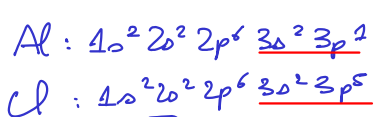 Al : 1s² 2s² 2p⁶ 3s² 3p¹
Cl : 1s² 2s² 2p⁶ 3s² 3p⁵